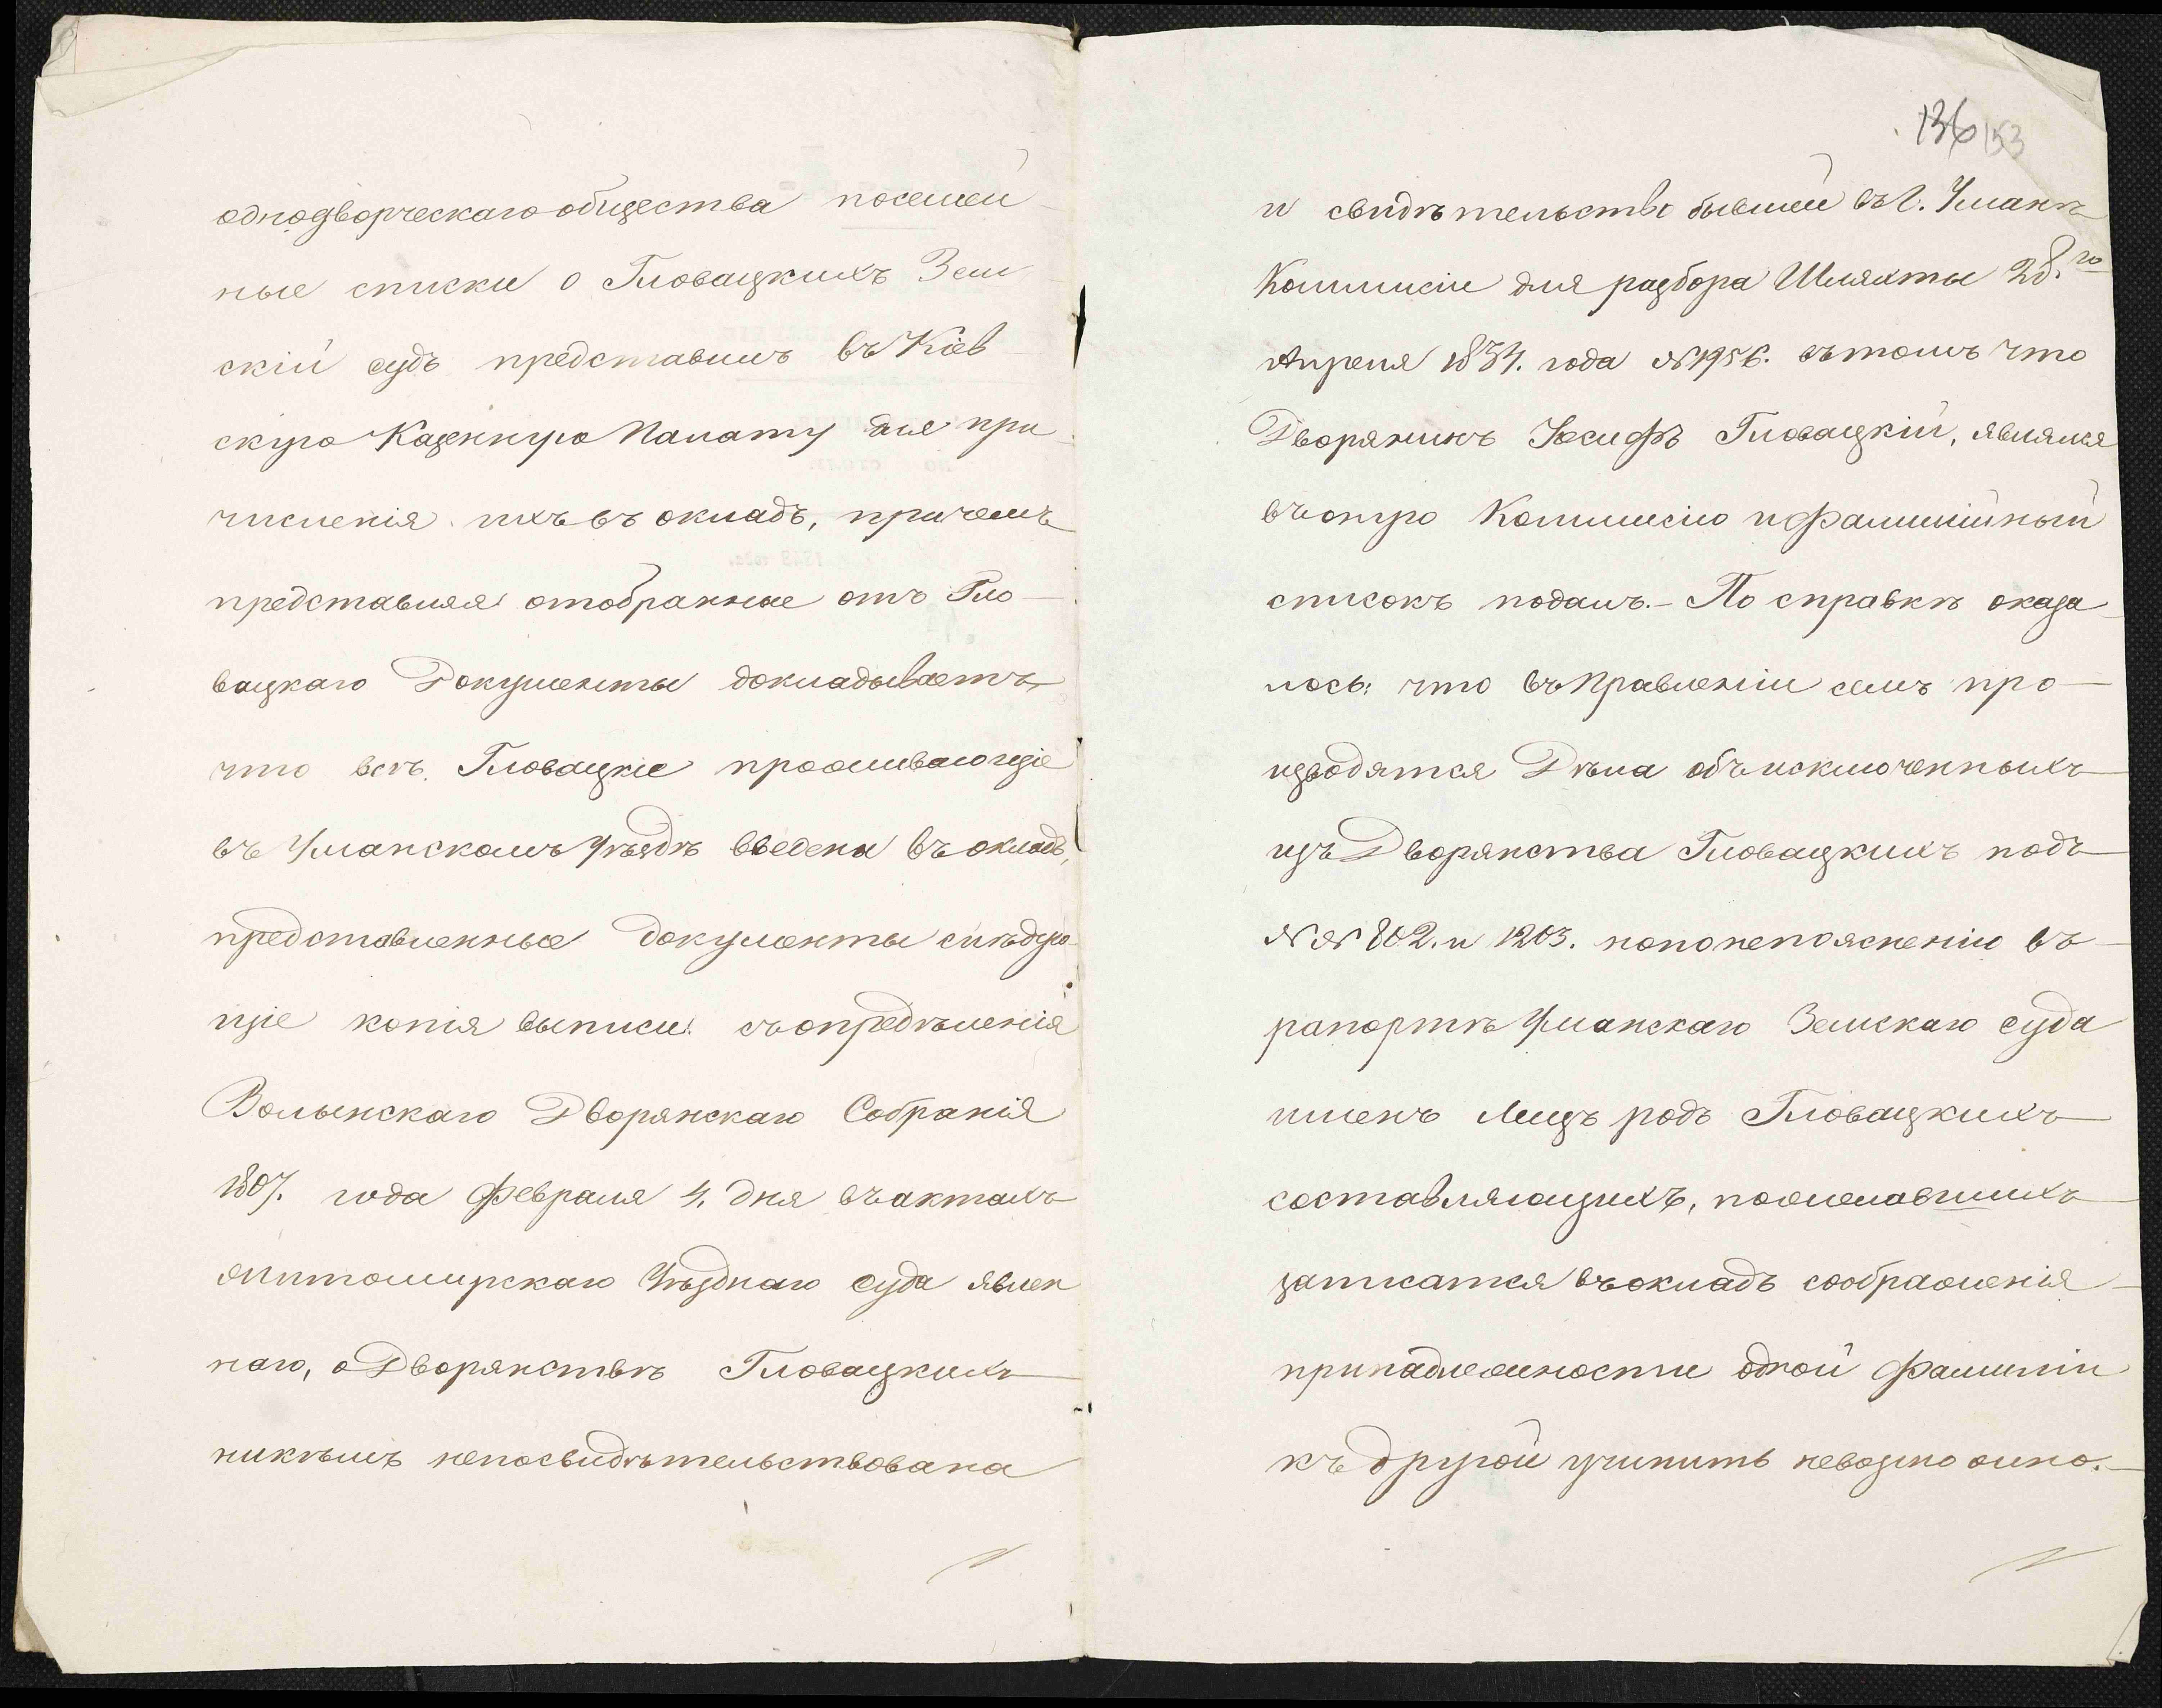 однодворческаго общества посемей
ные списки о Гловацкихъ Зем
скій судъ представилъ въ Кіев
скую Казенную Палату для при
численія ихъ въ окладъ, причемъ
представляя отобранные отъ Гло-
вацкаго Документы докладываетъ,
что всѣ Гловацкіе проживающіе
въ Уманскомъ Уѣздѣ введены въ окладъ,
представленные документы слѣдую-
щіе копія выписи съ опредѣленія
Волынскаго Дворянскаго Собранія
1807. года Февраля 4. дня въ актахъ
Житомирскаго Уѣзднаго суда явлен
наго, о Дворянствѣ Гловацкихъ
никѣмъ непосвидѣтельствована
136 153
и свидѣтельство бывшей въ г. Уманѣ
Коммисіи для разбора Шляхты 28.го
Апреля 1834. года №1956. въ томъ что
Дворянинъ Іосифъ Гловацкій, являлся
въ оную Коммисію и фамилійный
списокъ подалъ.- По справкѣ оказа
лось: что въ Правленіи семъ про-
изводятся Дѣла объ исключенныхъ
изъ Дворянства Гловацкихъ подъ
№№ 802. и 1203. но по непоясненію въ
рапортѣ Уманскаго Земскаго суда
именъ Лицъ родъ Гловацкихъ
составляющихъ, пожелавшихъ
записатся въ окладъ соображенія
принадлежности одной фамиліи
къ другой учинить невозможно.-